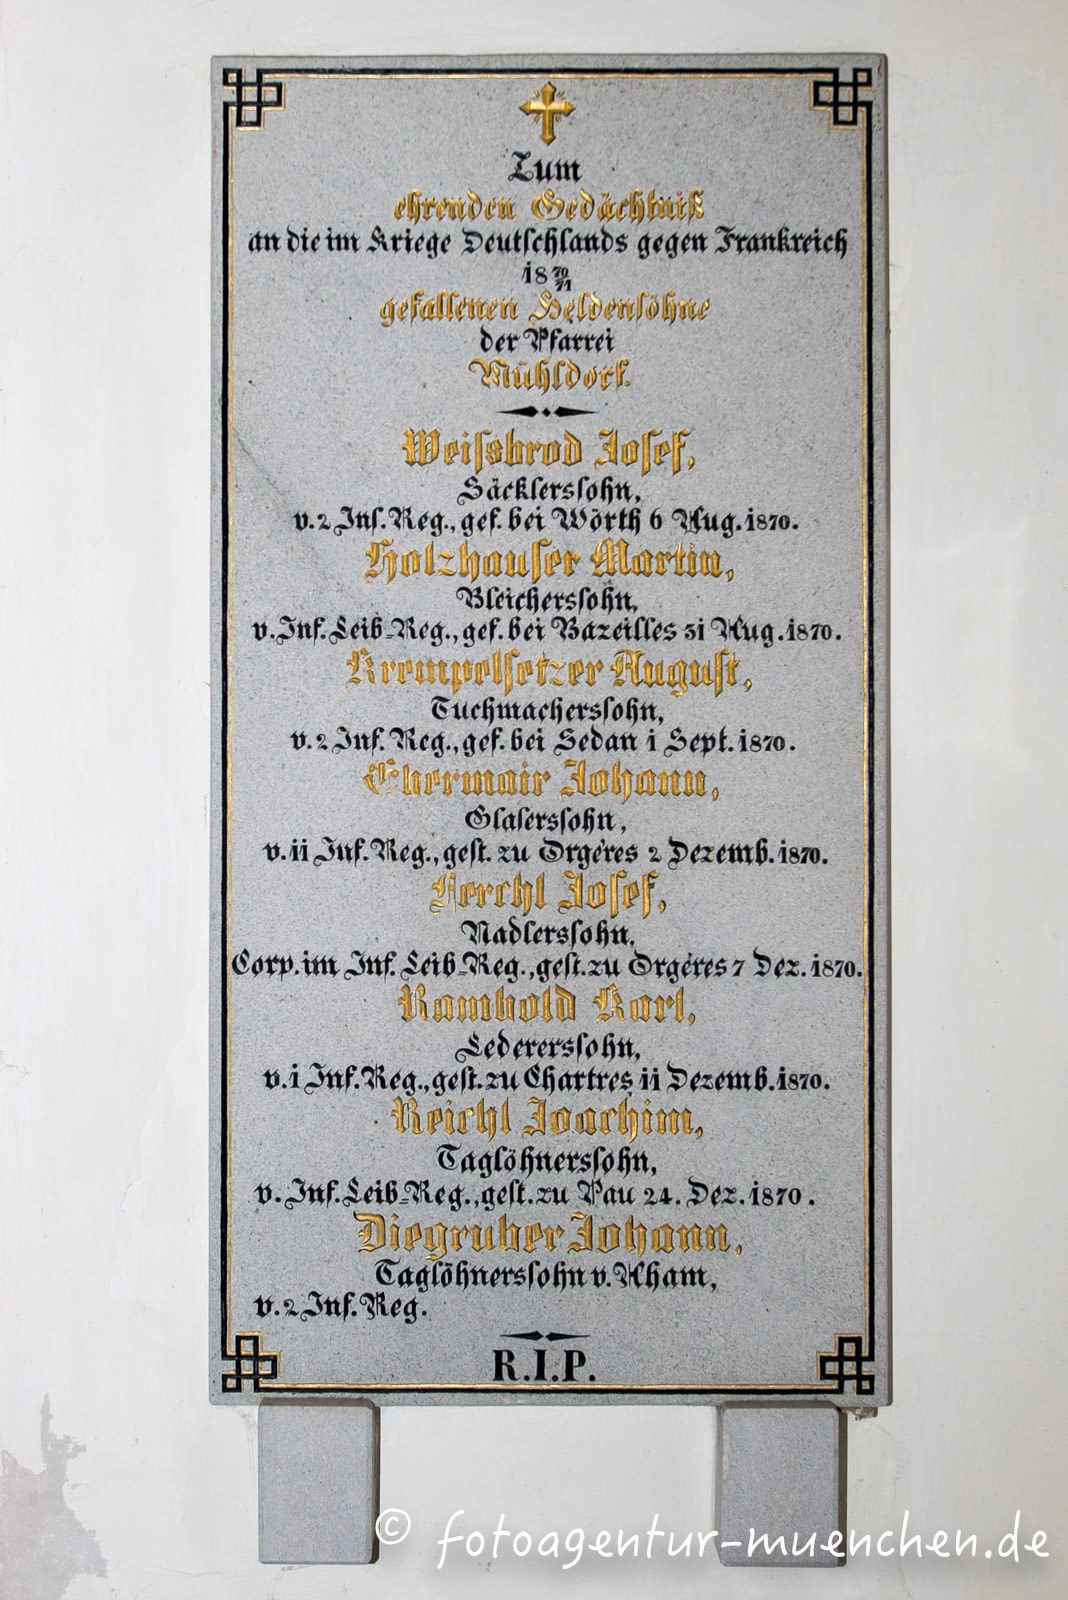 Zum
ehrenden Gedächtniß
an die im Kriege Deutſchlands gegen Frankreich
18 70/71
gefallenen Heldenſöhne
der Pfarrei
Mühldorf.
Weiſsbrod Joſef,
Säcklersſohn,
v. 2 Inf. Reg., gef. bei Wörth 6 Aug. 1870.
Holzhauſer Martin,
Bleichersſohn,
v. Inf. Leib-Reg., gef. bei Bazeilles 31 Aug. 1870.
Krempelſetzer Auguſt,
Tuchmachersſohn,
v. 2 Inf. Reg., gef. bei Sedan 1 Sept. 1870.
Ebermair Johann,
Glaſersſohn,
v. 11 Inf. Reg., geſt. zu Orgéres 2 Dezemb. 1870.
Ferchl Joſef,
Nadlersſohn,
Corp. im Inf. Leib-Reg., geſt. zu Orgéres 7 Dez. 1870.
Rambold Karl,
Lederersſohn,
v. 1 Inf. Reg., geſt. zu Chartres 11 Dezemb. 1870.
Reichl Joachim,
Taglöhnersſohn,
v. Inf. Leib-Reg., geſt. zu Pau 24. Dez. 1870.
Diegruber Johann,
Taglöhnersſohn v. Aham,
v. 2 Inf. Reg.
R.I.P.
© fotoagentur-muenchen.de